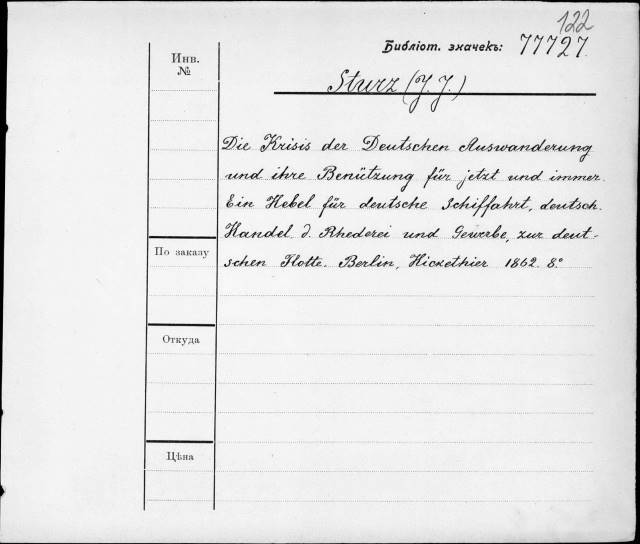 122
Библіот. значекъ: 77727.
Инв.
№
Sturz (J. J.)
Die Krisis der Deutschen Auswanderung
und ihre Benützung für jetzt und immer.
Ein Hebel für deutsche Schiffahrt, deutsch.
Handel d. Rhederei und Gewerbe, zur deut-
schen Flotte. Berlin, Hickethier 1862. 8.°
По заказу
Откуда
Цѣна